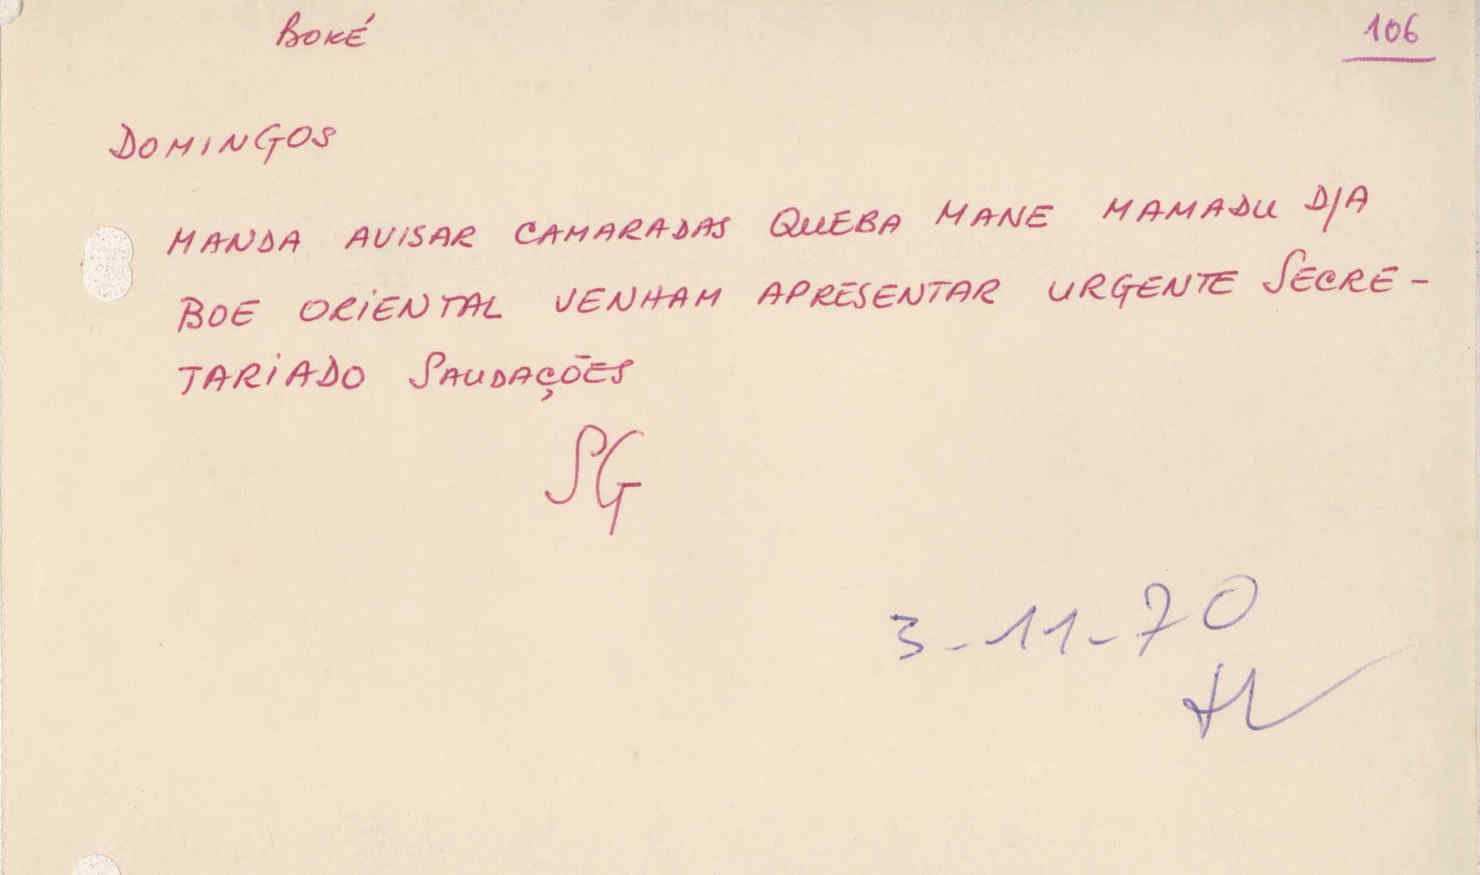 BOKÉ
106
DOMINGOS
MANDA AVISAR CAMARADAS QUEBA MANE MAMADU DJA
BOE ORIENTAL VENHAM APRESENTAR URGENTE SECRE-
TARIADO SAUDAÇÕES
SG
3-11-70